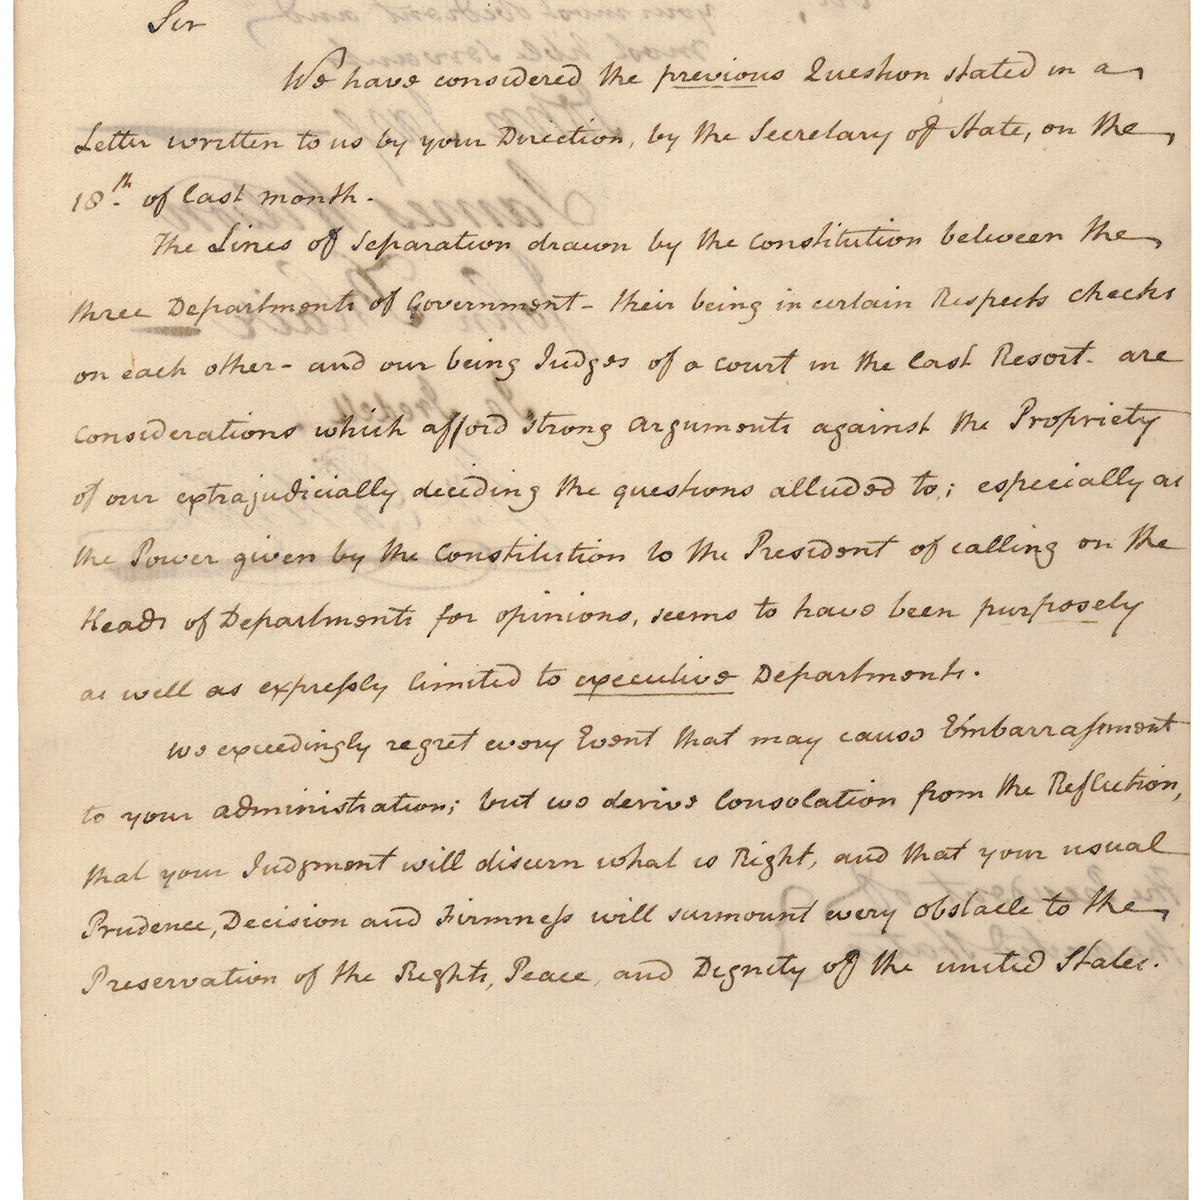 Sir
We have considered the previous Question stated in a
Letter written to us by your Direction, by the Secretary of State, on the
18th. of last month.
The Lines of Separation drawn by the Constitution between the
three Departments of Government – their being in certain Respects checks
on each other – and our being Judges of a court in the last Resort – are
Considerations which afford strong arguments against the Propriety
of our extrajudicially deciding the questions alluded to; especially as
the Power given by the Constitution to the President of calling on the
Heads of Departments for opinions, seems to have been purposely
as well as expressly limited to executive Departments.
We exceedingly regret every Event that may cause Embarrassment
to your administration; but we derive Consolation from the Reflection,
that your Judgment will discern what is Right, and that your usual
Prudence, Decision and Firmness will surmount every obstacle to the
Preservation of the Rights, Peace, and Dignity of the united States.